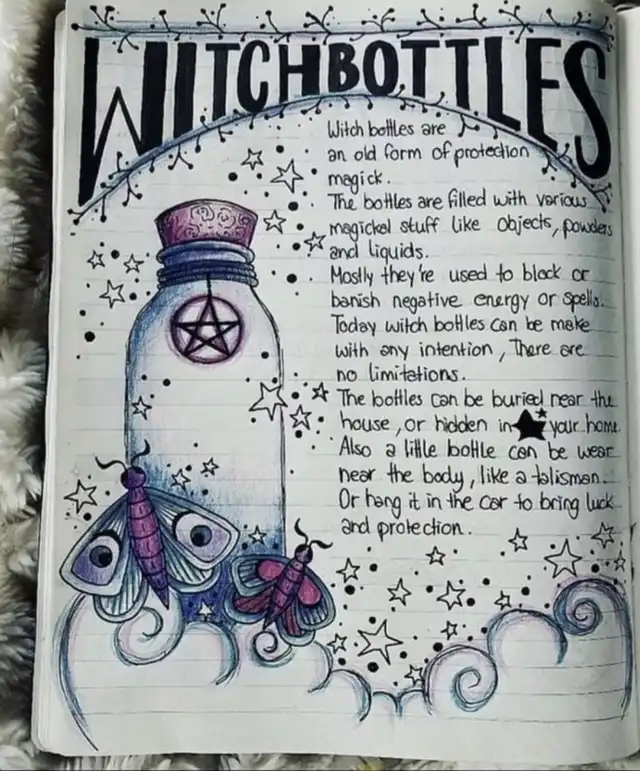 WITCHBOTTLES
Witch bottles are
an old form of protection
magick.
The bottles are filled with various
magickal stuff like objects, powders
and liquids.
Mostly they're used to block or
banish negative energy or spells.
Today witch bottles can be make
with any intention, There are
no limitations.
The bottles can be buried near the
house, or hidden in your home.
Also a little bottle can be wear
near the body, like a talisman.
Or hang it in the car to bring luck
and protection.